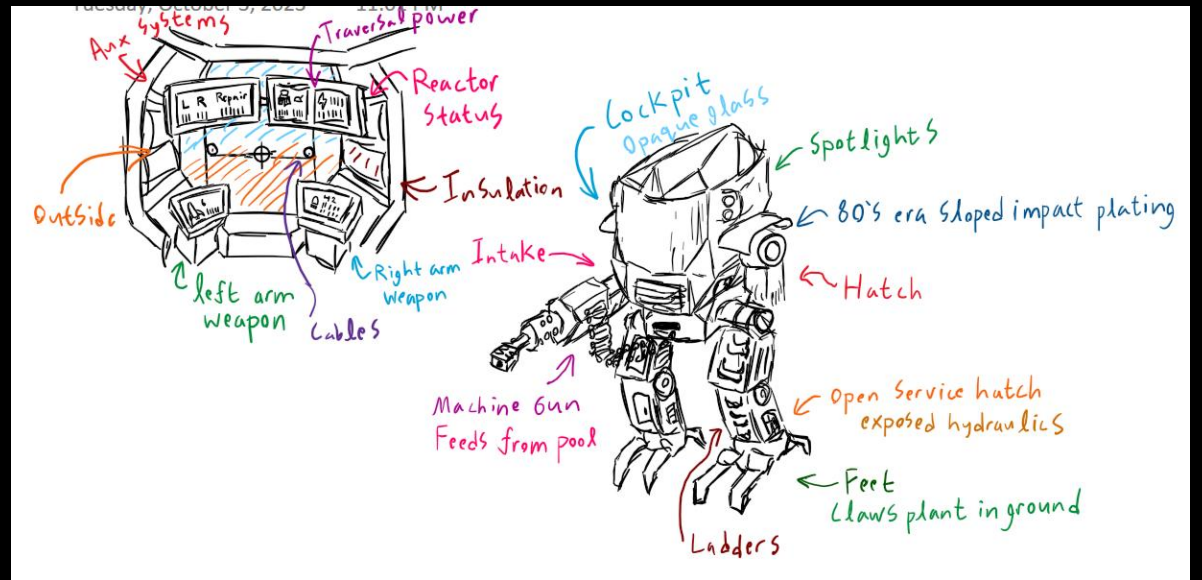 Tuesday, October 3, 2023
Aux systems
Traversal power
Reactor
Status
L R Repair
Outside
Insulation
left arm
weapon
Right arm
weapon
Cables
Cockpit
Opaque glass
Spotlights
80's era sloped impact plating
Intake
Hatch
Machine Gun
Feeds from pool
Open Service hatch
exposed hydraulics
Feet
Claws plant in ground
Ladders